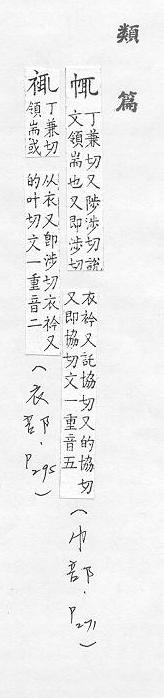 類篇
㡇
丁兼切又陟涉切說
文領耑也又即涉切
衣衿又託協切又的協切
又即協切文一重音五
(巾部·P271)
丁兼切
領耑或
从衣又即涉切衣衿又
的叶切文一重音二
(衣部·P295)